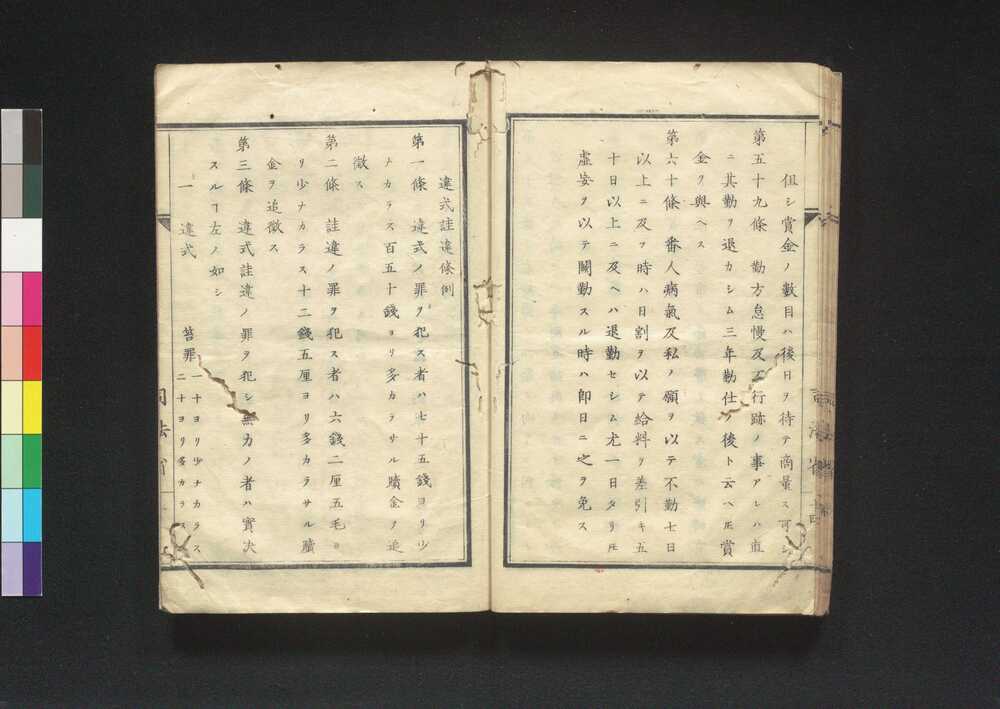 但シ賞金ノ數目ハ後日ヲ待テ商量ス可シ
第五十九條 勤方怠慢及不行跡ノ事アレハ直
ニ其勤ヲ退カシム三年勤仕ノ後ト云ヘ𪜈賞
金ヲ與ヘス
第六十條 番人病氣及私ノ願ヲ以テ不勤七日
以上ニ及フ時ハ日割ヲ以テ給料ヲ差引キ五
十日以上ニ及ヘハ退勤セシム尤一日タリ𪜈
虚妄ヲ以テ闕勤スル時ハ即日ニ之ヲ免ス
違式詿違條例
第一條 違式ノ罪ヲ犯ス者ハ七十五錢ヨリ少
ナカラス百五十錢ヨリ多カラサル贖金ヲ追
徴ス
第二條 詿違ノ罪ヲ犯ス者ハ六錢二厘五毛ヨ
リ少ナカラス十二錢五厘ヨリ多カラサル贖
金ヲ追徴ス
第三條 違式詿違ノ罪ヲ犯シ無力ノ者ハ實決
スルヿ左ノ如シ
一 違式 笞罪 一十ヨリ少ナカラス
二十ヨリ多カラス
司法省